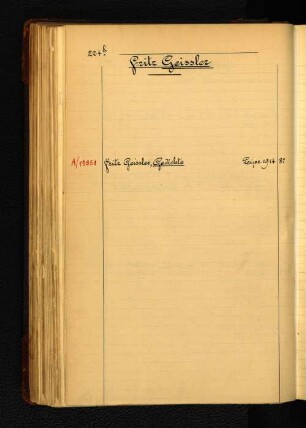 224b
Fritz Geissler
A/19851 Fritz Geissler, Gedichte Leipz. 1914 8°